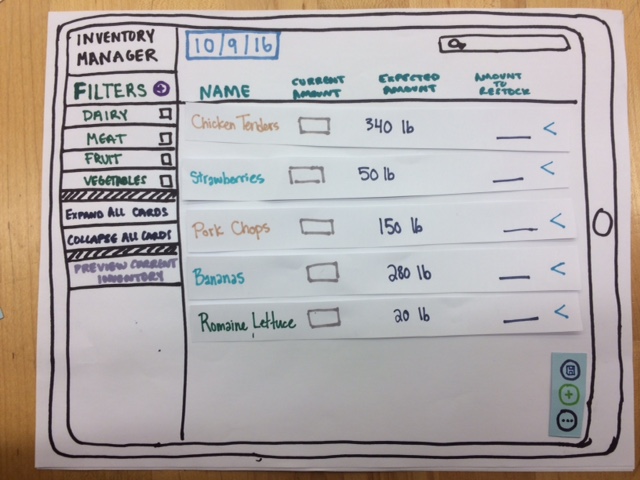 INVENTORY
MANAGER
10/9/16
FILTERS +
DAIRY
MEAT
FRUIT
VEGETABLES
EXPAND ALL CARDS
COLLAPSE ALL CARDS
PREVIEW CURRENT
INVENTORY
NAME
CURRENT
AMOUNT
EXPECTED
AMOUNT
AMOUNT
TO
RESTOCK
Chicken Tenders 340 lb <
Strawberries 50 lb <
Pork Chops 150 lb <
Bananas 280 lb <
Romaine Lettuce 20 lb <
+